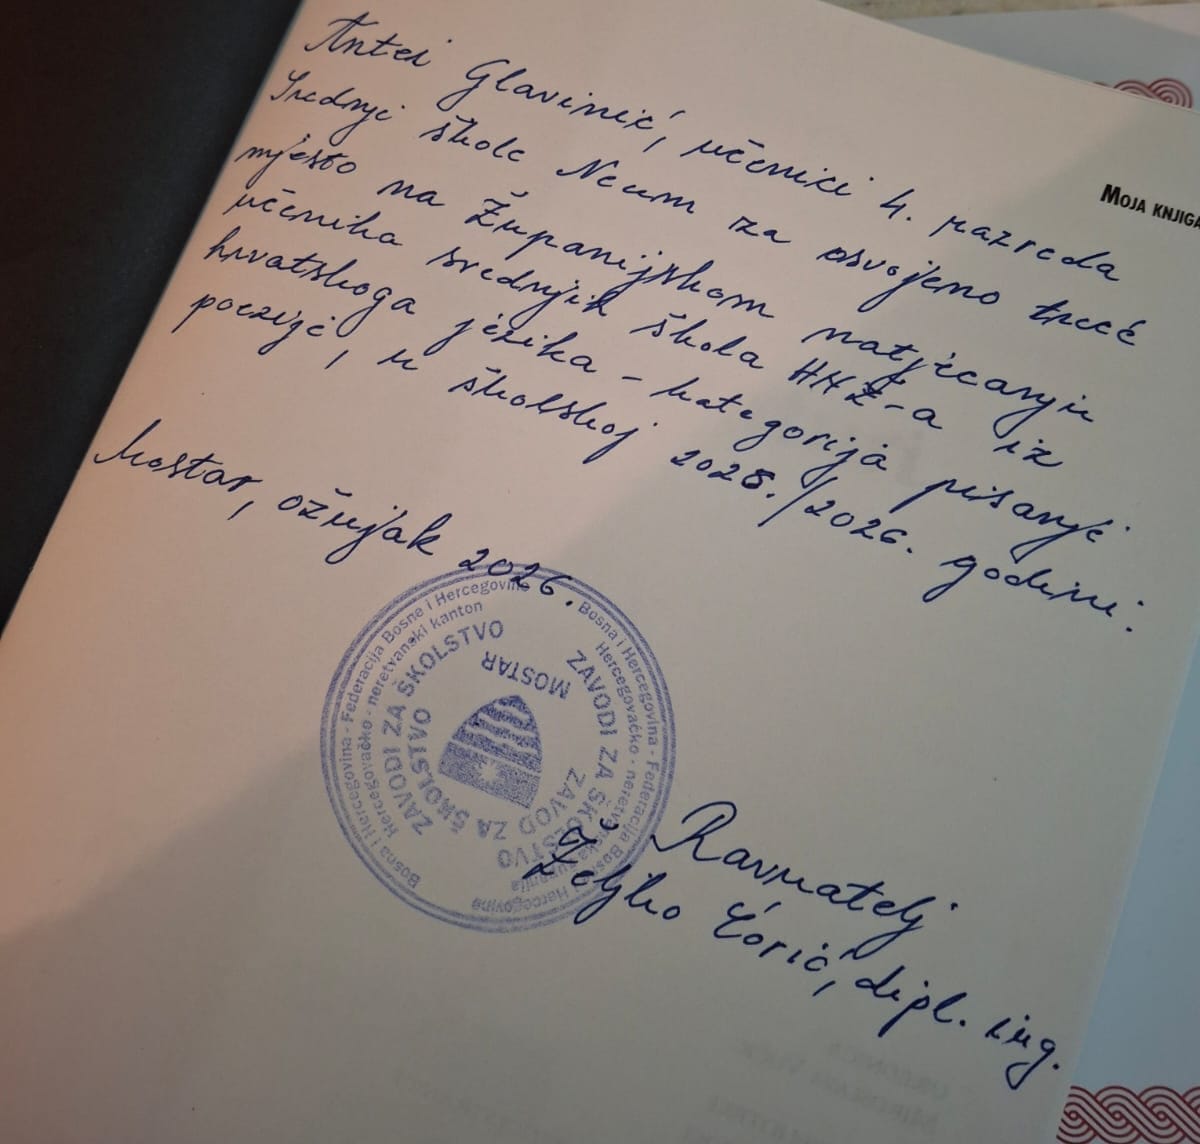 Antei Glavinić, učenici 4. razreda
Srednje škole Neum za osvojeno treće
mjesto na Županijskom natjecanju
učenika srednjih škola HNŽ-a iz
hrvatskoga jezika - kategorija pisanje
poezije, u školskoj 2025./2026. godini.
Mostar, ožujak 2026.
MOJA KNJIGA
Bosna i Hercegovina - Federacija Bosne i Hercegovine
Hercegovačko - neretvanski kanton
ZAVODI ZA ŠKOLSTVO
ZAVOD ZA ŠKOLSTVO
MOSTAR
Bosna i Hercegovina - Federacija Bosne i Hercegovine
Hercegovačko - neretvanska županija
ZAVODI ZA ŠKOLSTVO
Ravnatelj
Željko Ćorić, dipl. ing.